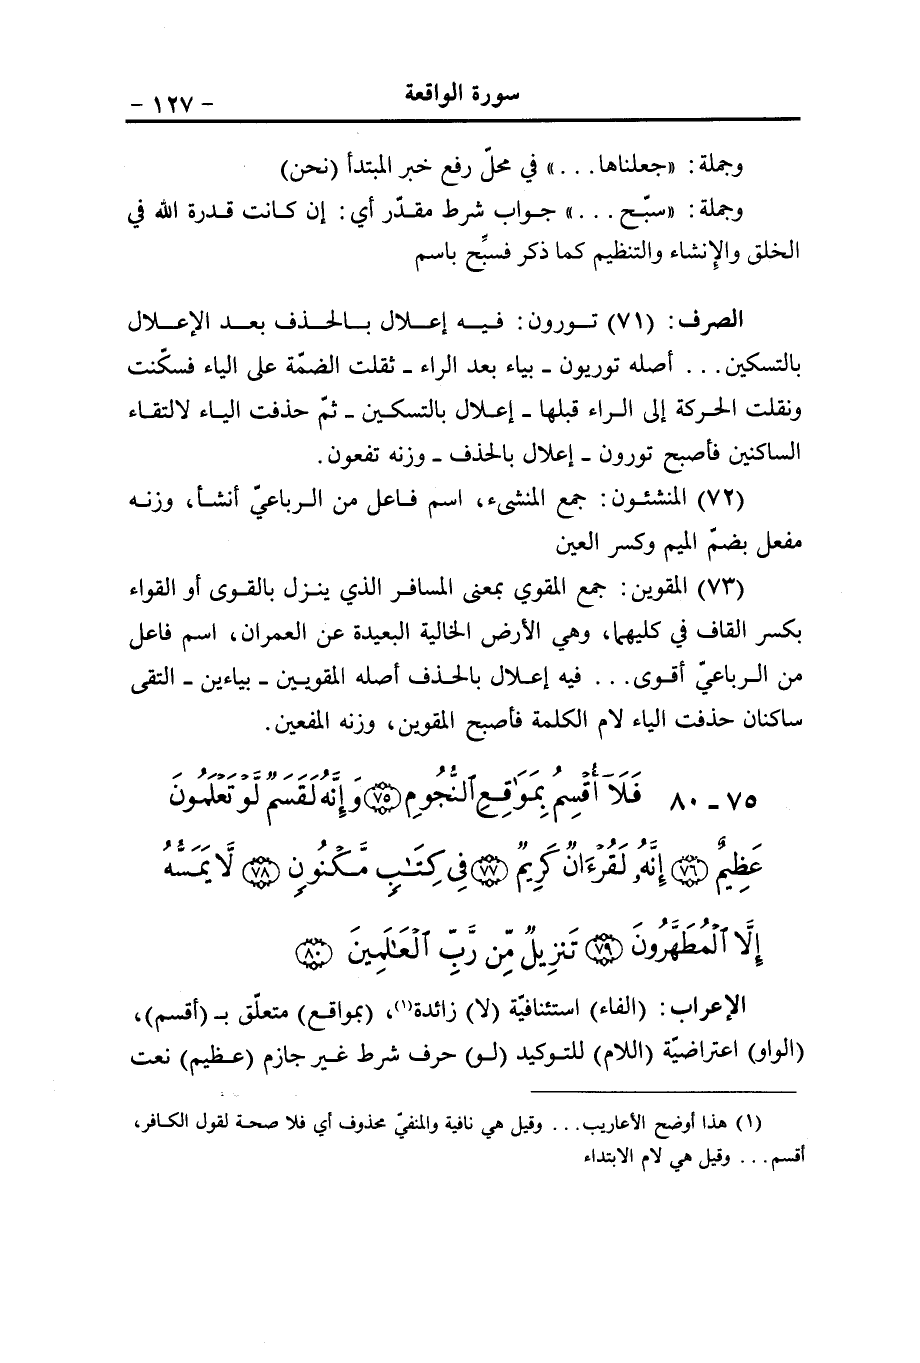 سورة الواقعة
- ١٢٧ -
وجملة: «جعلناها...» في محلّ رفع خبر المبتدأ (نحن)
وجملة: «سبّح...» جواب شرط مقدّر أي: إن كانت قدرة الله في
الخلق والإنشاء والتنظيم كما ذكر فسبِّح باسم
الصرف: (٧١) تورون: فيه إعلال بالحذف بعد الإعلال
بالتسكين... أصله توريون ـ بياء بعد الراء ـ ثقلت الضمّة على الياء فسكّنت
ونقلت الحركة إلى الراء قبلها ـ إعلال بالتسكين ـ ثمّ حذفت الياء لالتقاء
الساكنين فأصبح تورون ـ إعلال بالحذف ـ وزنه تفعون.
(٧٢) المنشئون: جمع المنشىء، اسم فاعل من الرباعيّ أنشأ، وزنه
مفعل بضمّ الميم وكسر العين
(٧٣) المقوين: جمع المقوي بمعنى المسافر الذي ينزل بالقوى أو القواء
بكسر القاف في كليهما، وهي الأرض الخالية البعيدة عن العمران، اسم فاعل
من الرباعيّ أقوى... فيه إعلال بالحذف أصله المقويين ـ بياءين ـ التقى
ساكنان حذفت الياء لام الكلمة فأصبح المقوين، وزنه المفعين.
٧٥ ـ ٨٠ فَلَا أُقْسِمُ بِمَوَٰقِعِ ٱلنُّجُومِ ﴿٧٥﴾ وَإِنَّهُۥ لَقَسَمٌ لَّوْ تَعْلَمُونَ
عَظِيمٌ ﴿٧٦﴾ إِنَّهُۥ لَقُرْءَانٌ كَرِيمٌ ﴿٧٧﴾ فِي كِتَٰبٍ مَّكْنُونٍ ﴿٧٨﴾ لَّا يَمَسُّهُۥ
إِلَّا ٱلْمُطَهَّرُونَ ﴿٧٩﴾ تَنزِيلٌ مِّن رَّبِّ ٱلْعَٰلَمِينَ ﴿٨٠﴾
الإعراب: (الفاء) استئنافيّة (لا) زائدة(١)، (بمواقع) متعلّق بـ (أقسم)،
(الواو) اعتراضيّة (اللام) للتوكيد (لو) حرف شرط غير جازم (عظيم) نعت
(١) هذا أوضح الأعاريب... وقيل هي نافية والمنفيّ محذوف أي فلا صحة لقول الكافر،
أقسم... وقيل هي لام الابتداء